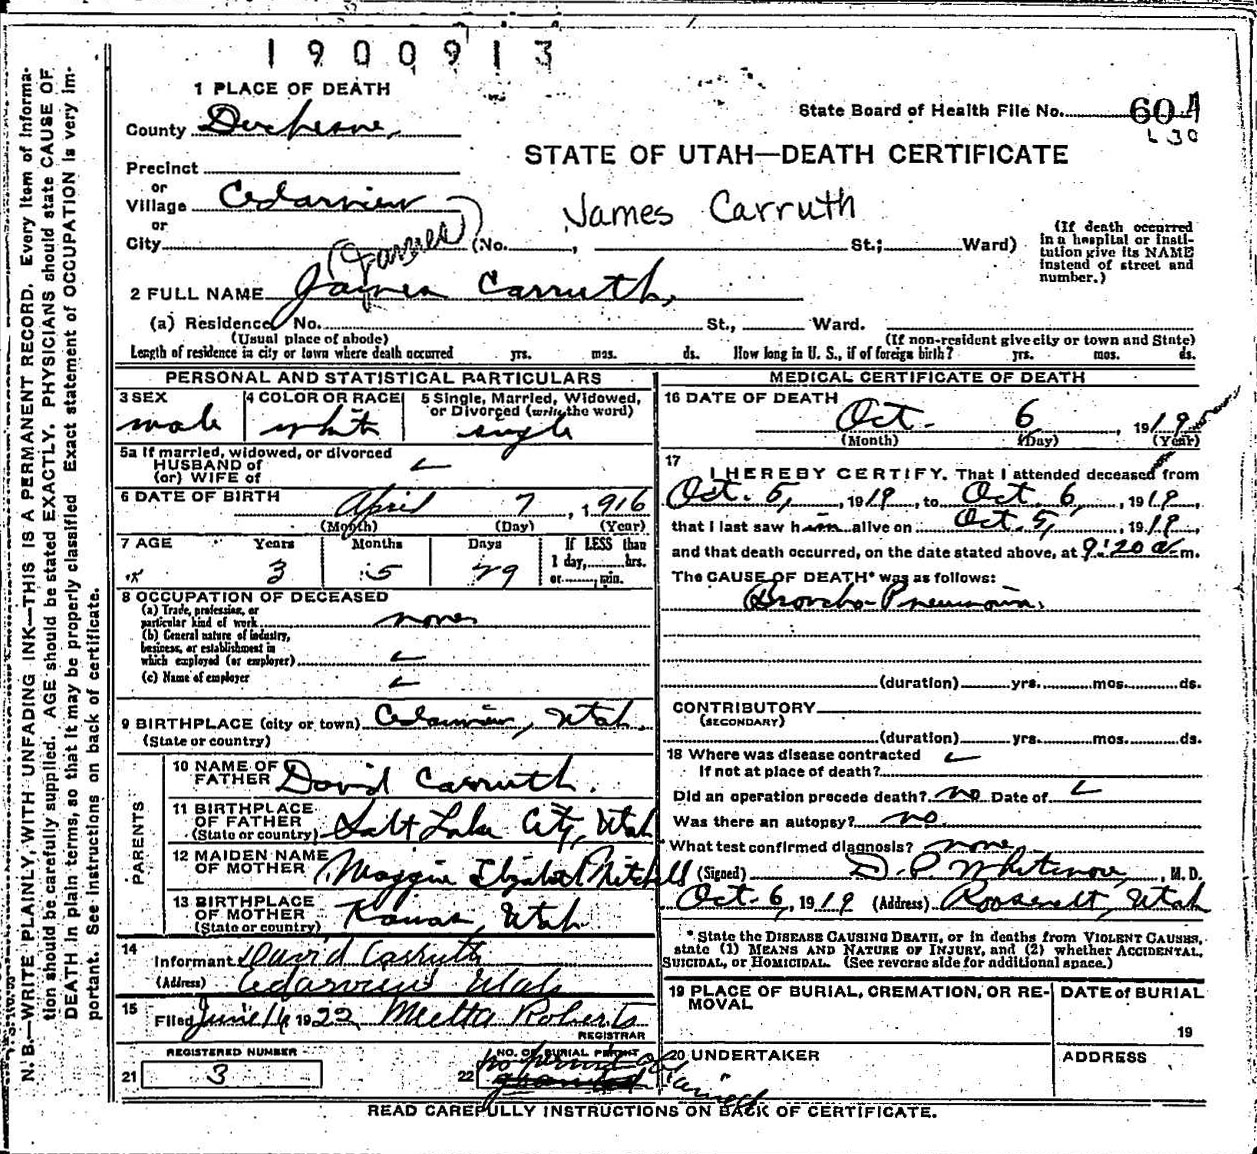 1900913
1 PLACE OF DEATH
State Board of Health File No. 604
L30
County Duchesne,
STATE OF UTAH—DEATH CERTIFICATE
Precinct
or
Village Cedarview
James Carruth
or
City (No. , St.; Ward)
(If death occurred
in a hospital or insti-
tution give its NAME
instead of street and
number.)
(James)
2 FULL NAME James Carruth,
(a) Residence No. St., Ward.
(Usual place of abode) (If non-resident give city or town and State)
Length of residence in city or town where death occurred yrs. mos. ds. How long in U. S., if of foreign birth? yrs. mos. ds.
PERSONAL AND STATISTICAL PARTICULARS
3 SEX 4 COLOR OR RACE 5 Single, Married, Widowed,
or Divorced (write the word)
male white single
5a If married, widowed, or divorced
HUSBAND of
(or) WIFE of
6 DATE OF BIRTH
April 7, 1916
(Month) (Day) (Year)
7 AGE Years Months Days If LESS than
1 day, hrs.
or min.
3 5 29
8 OCCUPATION OF DECEASED
(a) Trade, profession, or
particular kind of work none
(b) General nature of industry,
business, or establishment in
which employed (or employer)
(c) Name of employer
9 BIRTHPLACE (city or town) Cedarview, Utah
(State or country)
PARENTS
10 NAME OF
FATHER David Carruth.
11 BIRTHPLACE
OF FATHER
(State or country) Salt Lake City, Utah
12 MAIDEN NAME
OF MOTHER Maggie Elizabeth Mitchell
13 BIRTHPLACE
OF MOTHER
(State or country) Kamas, Utah
14
Informant David Carruth
(Address) Cedarview Utah
15
Filed June 16 1922 Meltta Roberts
REGISTRAR
REGISTERED NUMBER
21 3
NO. OF BURIAL PERMIT
22 no permit
MEDICAL CERTIFICATE OF DEATH
16 DATE OF DEATH
Oct. 6, 1919
(Month) (Day) (Year)
17
I HEREBY CERTIFY, That I attended deceased from
Oct. 5, 1919, to Oct. 6, 1919,
that I last saw him alive on Oct. 5, 1919,
and that death occurred, on the date stated above, at 9:20 a m.
The CAUSE OF DEATH* was as follows:
Broncho-Pneumonia.
(duration) yrs. mos. ds.
CONTRIBUTORY
(SECONDARY)
(duration) yrs. mos. ds.
18 Where was disease contracted
If not at place of death?
Did an operation precede death? no Date of
Was there an autopsy? no
What test confirmed diagnosis? none
(Signed) D. P. Whitmore, M. D.
Oct. 6, 1919 (Address) Roosevelt, Utah
* State the DISEASE CAUSING DEATH, or in deaths from VIOLENT CAUSES,
state (1) MEANS AND NATURE OF INJURY, and (2) whether ACCIDENTAL,
SUICIDAL, or HOMICIDAL. (See reverse side for additional space.)
19 PLACE OF BURIAL, CREMATION, OR RE-
MOVAL
DATE of BURIAL
19
20 UNDERTAKER
ADDRESS
READ CAREFULLY INSTRUCTIONS ON BACK OF CERTIFICATE.
N. B.—WRITE PLAINLY, WITH UNFADING INK—THIS IS A PERMANENT RECORD. Every item of informa-
tion should be carefully supplied. AGE should be stated EXACTLY. PHYSICIANS should state CAUSE OF
DEATH in plain terms, so that it may be properly classified. Exact statement of OCCUPATION is very im-
portant. See instructions on back of certificate.